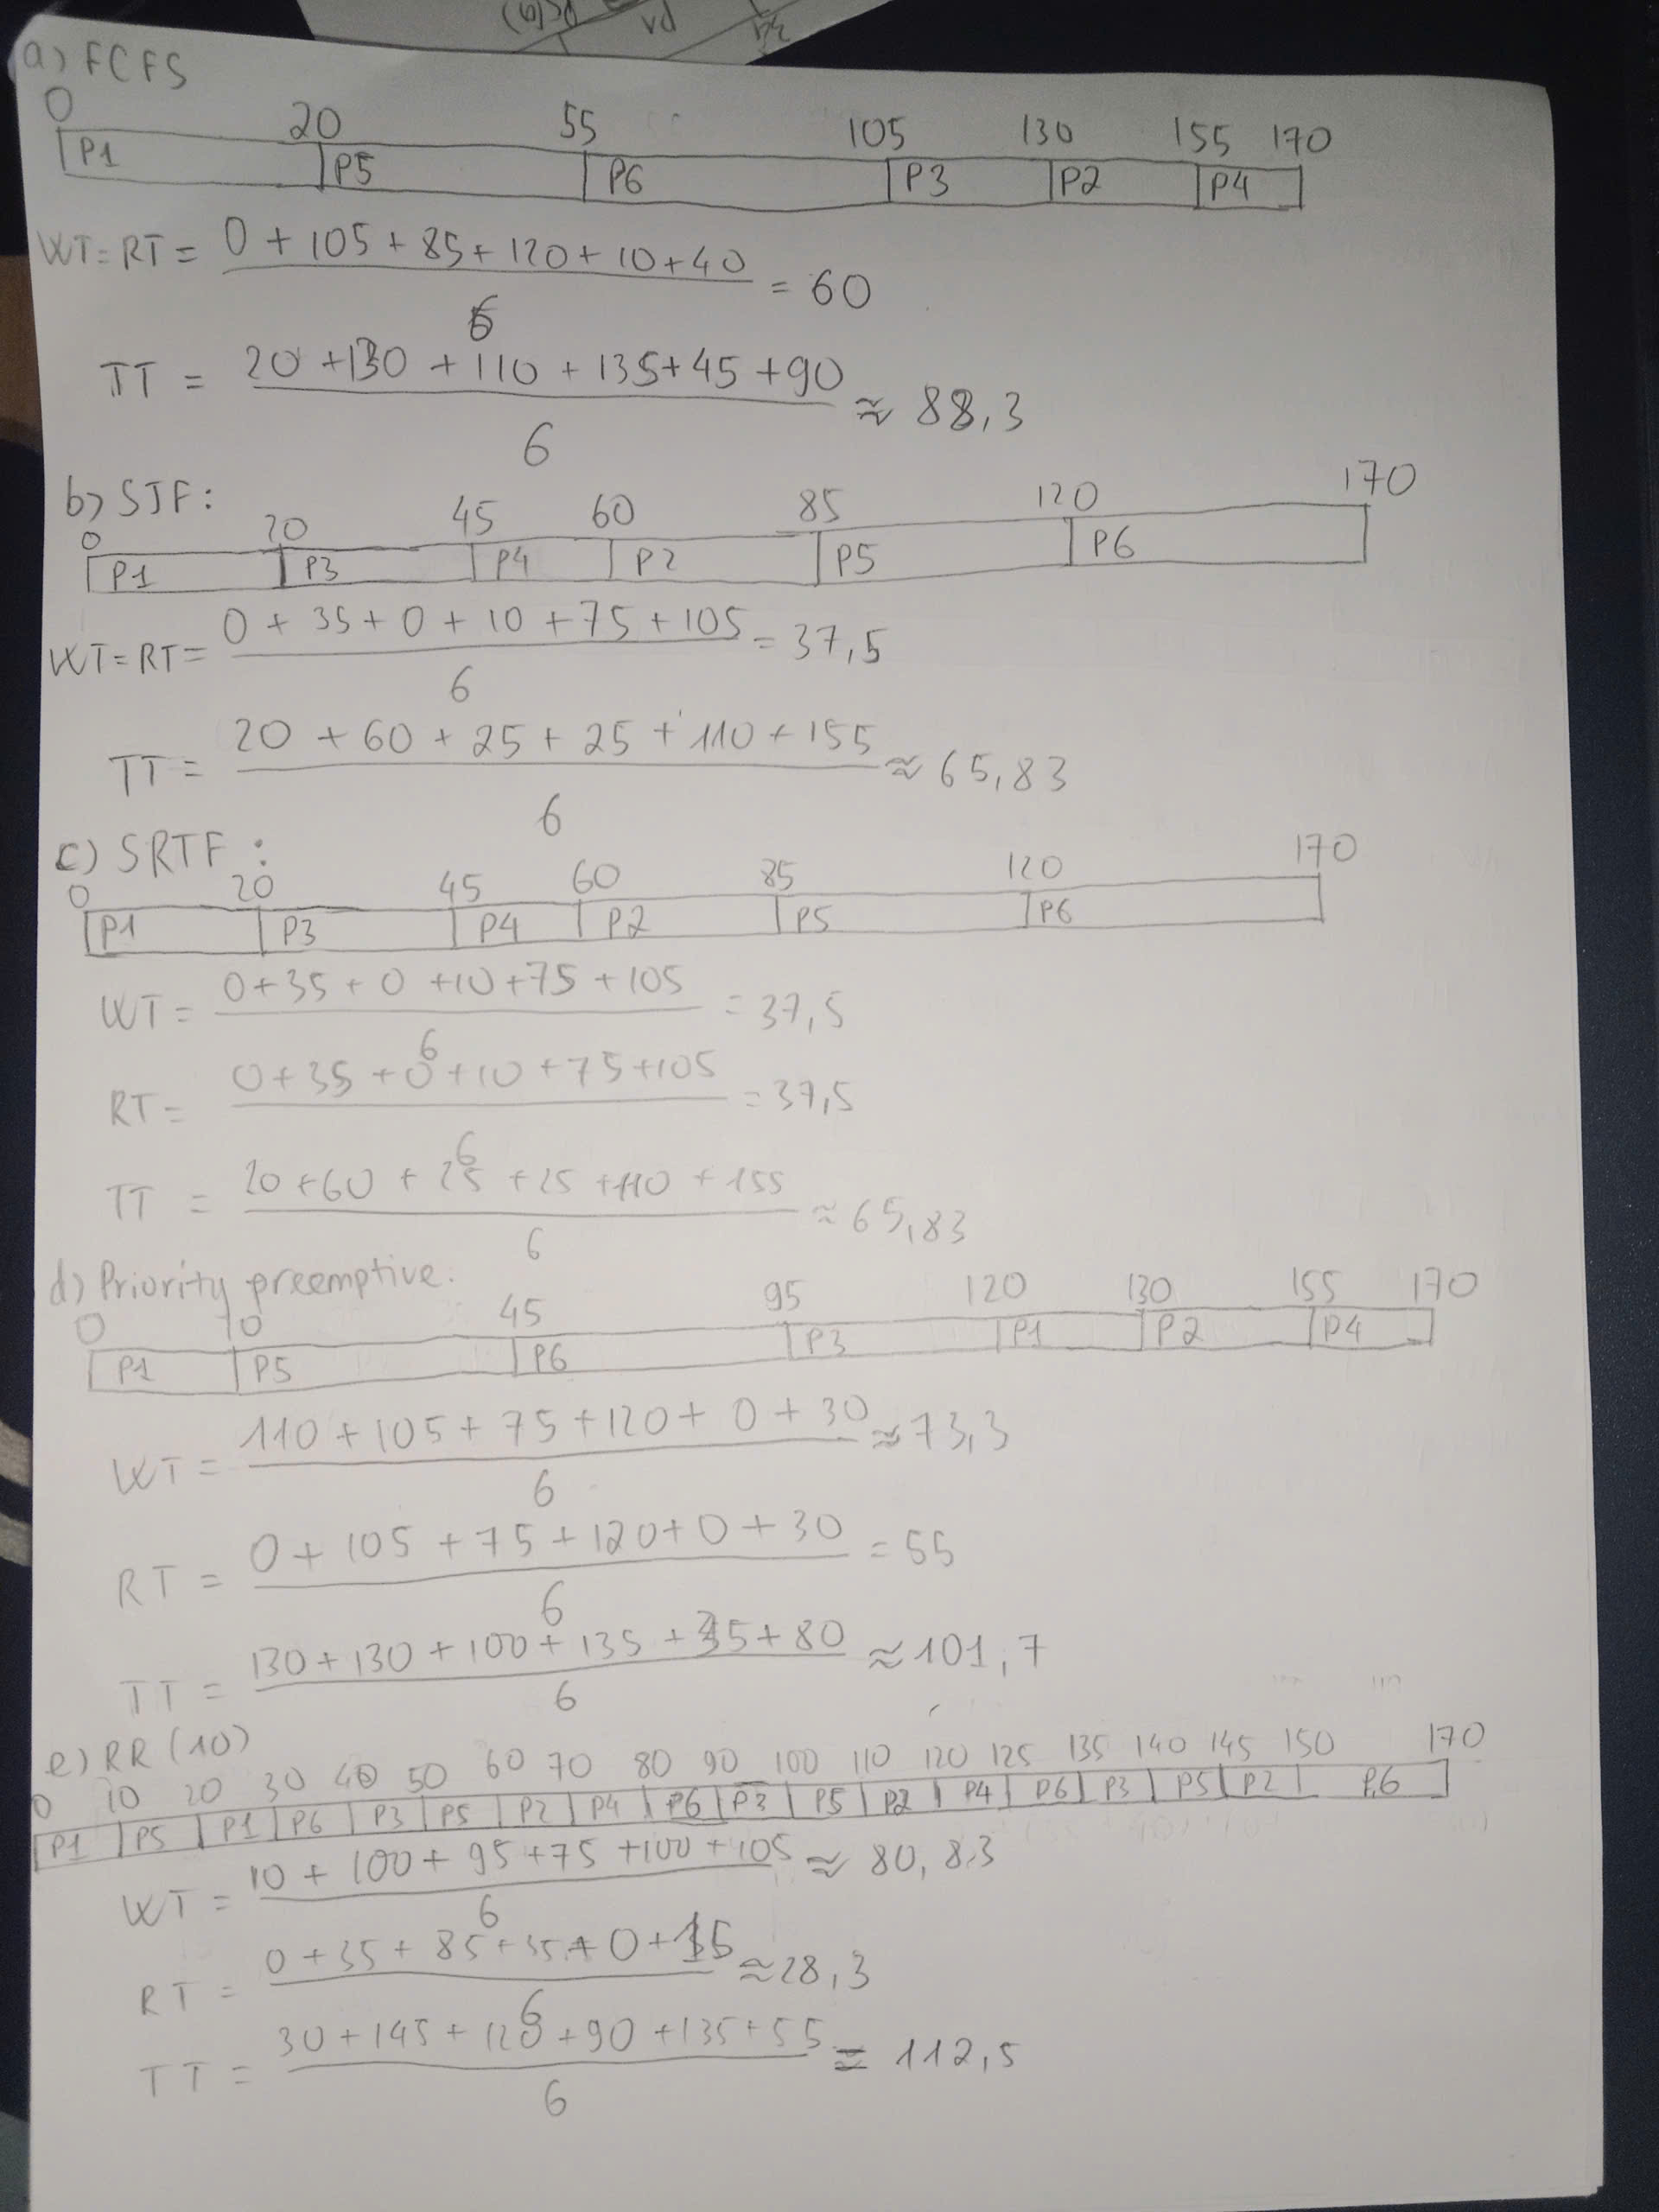 a) FCFS
0 20 55 105 130 155 170
P1 P5 P6 P3 P2 P4
WT = RT = 0 + 105 + 85 + 120 + 10 + 40 = 60
6
TT = 20 + 130 + 110 + 135 + 45 + 90 ≈ 88,3
6
b) SJF:
0 20 45 60 85 120 170
P1 P3 P4 P2 P5 P6
WT = RT = 0 + 35 + 0 + 10 + 75 + 105 = 37,5
6
TT = 20 + 60 + 25 + 25 + 110 + 155 ≈ 65,83
6
c) SRTF:
0 20 45 60 85 120 170
P1 P3 P4 P2 P5 P6
WT = 0 + 35 + 0 + 10 + 75 + 105 = 37,5
6
RT = 0 + 35 + 0 + 10 + 75 + 105 = 37,5
6
TT = 20 + 60 + 25 + 25 + 110 + 155 ≈ 65,83
6
d) Priority preemptive:
0 10 45 95 120 130 155 170
P1 P5 P6 P3 P1 P2 P4
WT = 110 + 105 + 75 + 120 + 0 + 30 ≈ 73,3
6
RT = 0 + 105 + 75 + 120 + 0 + 30 = 55
6
TT = 130 + 130 + 100 + 135 + 35 + 80 ≈ 101,7
6
e) RR (10)
0 10 20 30 40 50 60 70 80 90 100 110 120 125 135 140 145 150 170
P1 P5 P1 P6 P3 P5 P2 P4 P6 P3 P5 P2 P4 P6 P3 P5 P2 P6
WT = 10 + 100 + 95 + 75 + 100 + 105 ≈ 80,83
6
RT = 0 + 35 + 85 + 35 + 0 + 15 ≈ 28,3
6
TT = 30 + 145 + 120 + 90 + 135 + 55 = 112,5
6